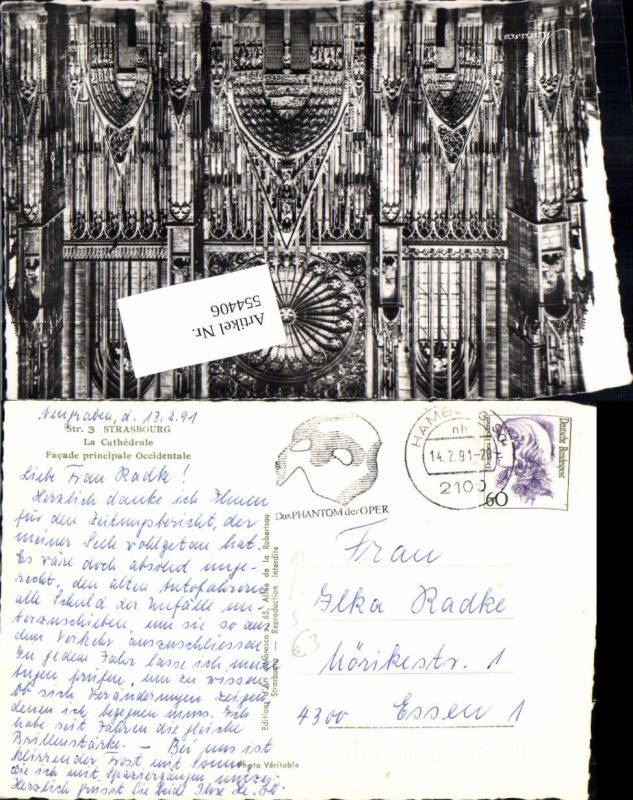 Marasco
Artikel Nr.
554406
Neugraben, d. 13.2.91
Str. 3 STRASBOURG
La Cathédrale
Façade principale Occidentale
Liebe Frau Radke!
Herzlich danke ich Ihnen
für den Zeitungsbericht, der
meiner Seele wohlgetan hat.
Es wäre doch absolut unge-
recht, den alten Autofahrern
alle Schuld der Unfälle un-
terzuschieben, um sie so aus
dem Verkehr auszuschliessen.
In jedem Jahr lasse ich meine
Augen prüfen, um zu wissen
ob sich Veränderungen zeigen,
denen ich begegnen muss. Ich
habe seit Jahren die gleiche
Brillenstärke. – Bei uns ist
klirrender Frost mit Sonne
die ich mit Spaziergängen
Herzlich grüsst Sie beide Ihre
Editions d'Art Marasco 65, Allée de la Robertsau
Strasbourg — Reproduction interdite
Photo Véritable
Das PHANTOM der OPER
HAMBURG
nh
14.2.91-20
2100
Deutsche Bundespost
60
Frau
Ilka Radke
Mörikestr. 1
4300 Essen 1
€3